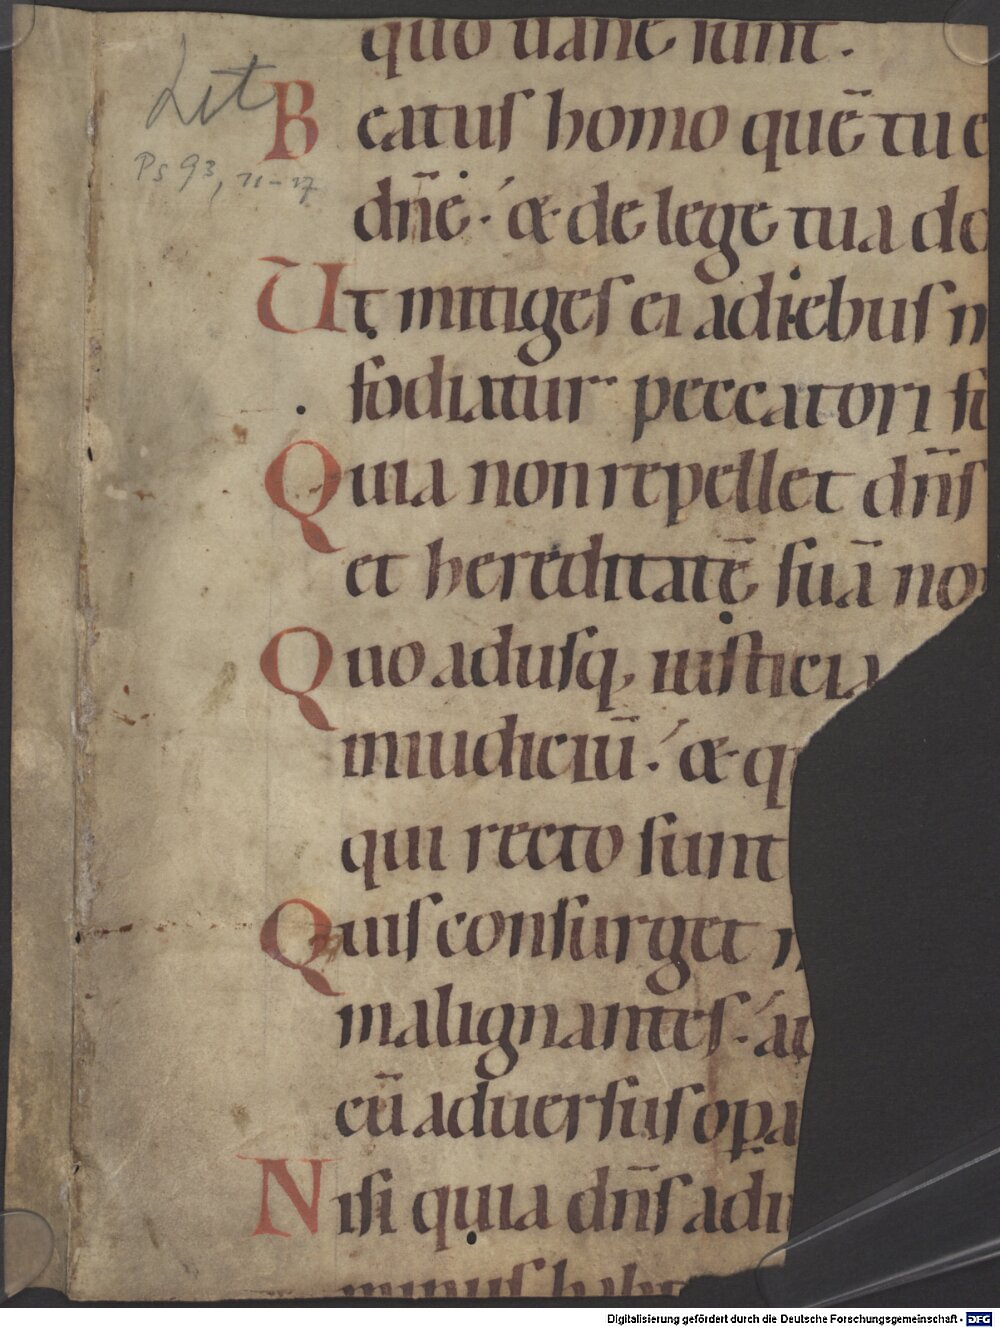 quo uane sunt.
Let
Beatus homo quē tu e
Ps 93, 11-17
dn̄e. & de lege tua do
Ut mitiges ei adiebus m
fodiatur peccatori fo
Quia non repellet dn̄s
et hereditatē suā non
Quo adusq, iusticia
iniudiciū. & q
qui recto sunt
Quis consurget m
malignantes. au
cū aduersus opa
Nisi quia dn̄s adiu
minus habi
Digitalisierung gefördert durch die Deutsche Forschungsgemeinschaft - DFG